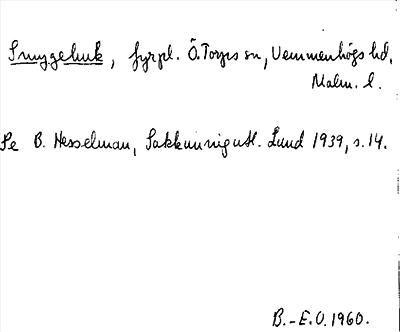 Smygehuk, fyrpl. Ö. Torps sn, Vemmenhögs hd,
Malm. l.
Se B. Hesselman, Sakkunnigutl. Lund 1939, s. 14.
B.-E.O. 1960.